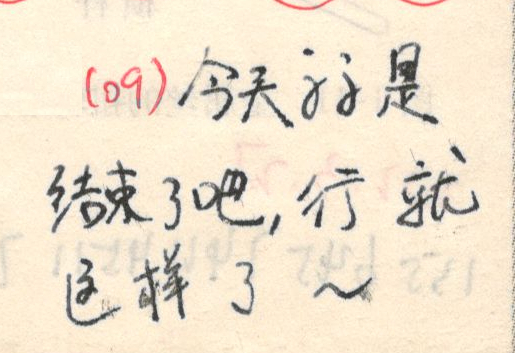 (09) 今天汸是
结束了吧,行就
这样了~